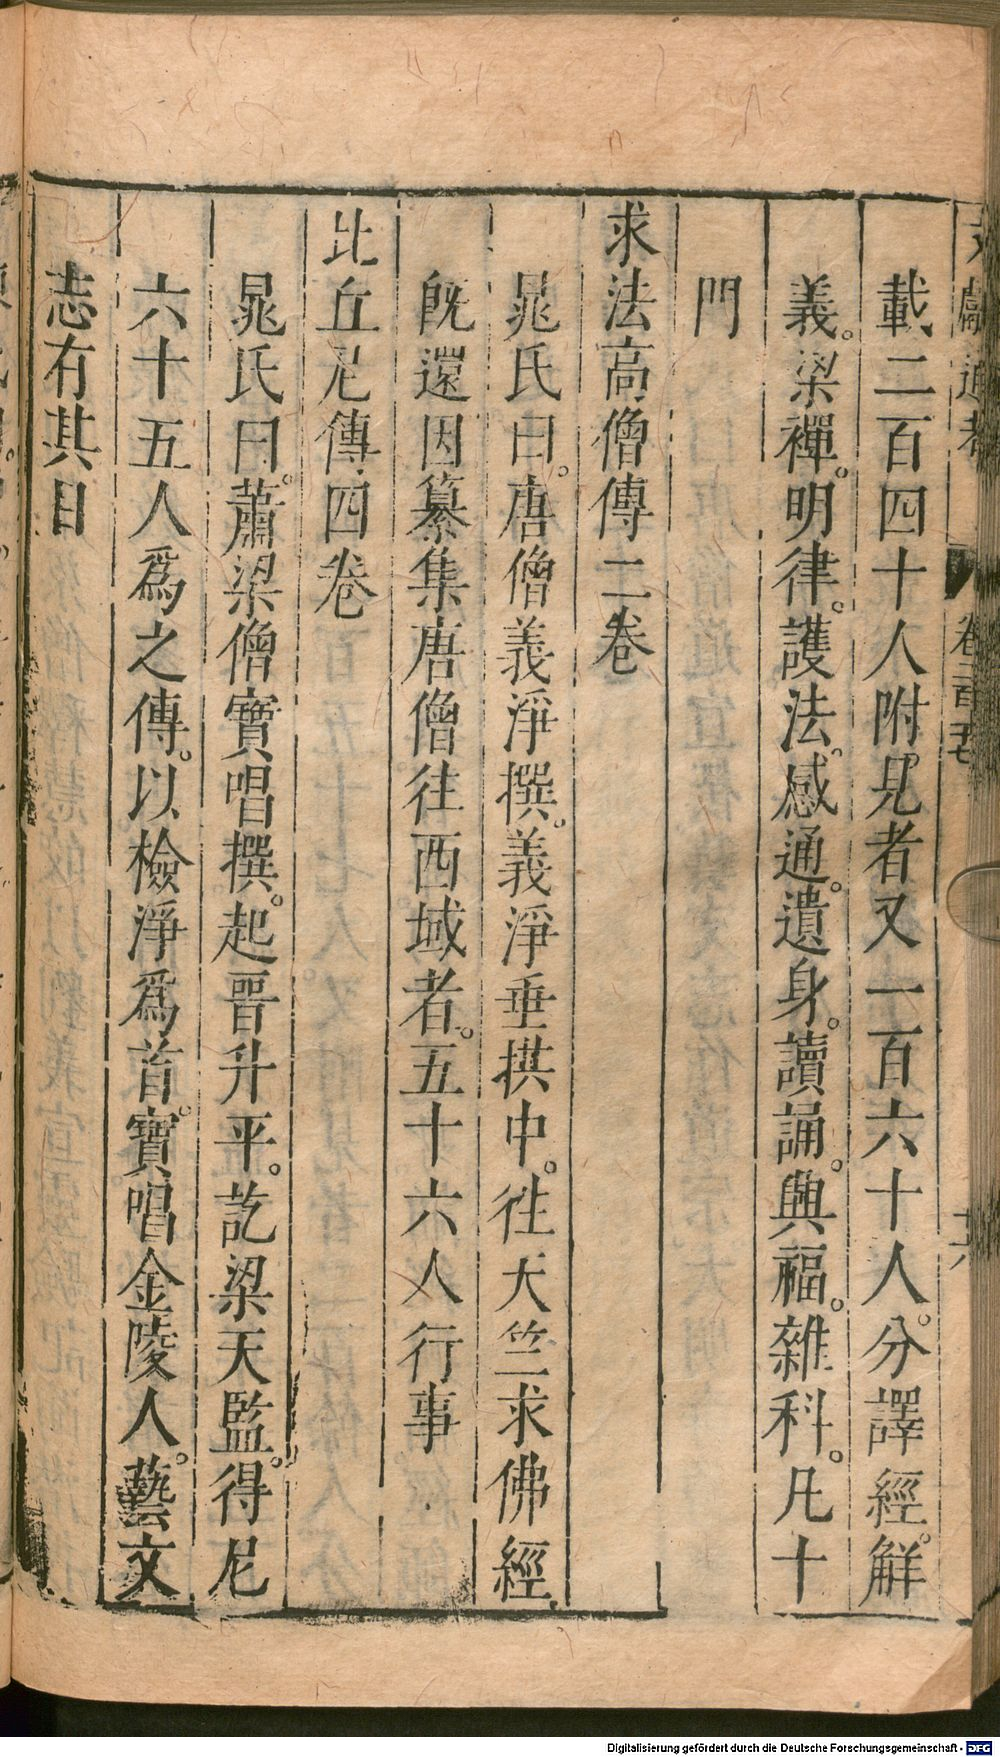 載二百四十人附見者又一百六十人。分譯經。解
義。梁禪。明律。護法。感通。遺身。讀誦。興福。雜科。凡十
門
求法高僧傳二卷
晁氏曰。唐僧義淨撰。義淨垂拱中。往天竺求佛經
旣還因纂集唐僧往西域者。五十六人行事
比丘尼傳四卷
晁氏曰。蕭梁僧寶唱撰。起晉升平。訖梁天監。得尼
六十五人爲之傳。以檢淨爲首。寶唱金陵人。藝文
志有其目
文獻通考
卷二百二十七
十六
Digitalisierung gefördert durch die Deutsche Forschungsgemeinschaft - DFG